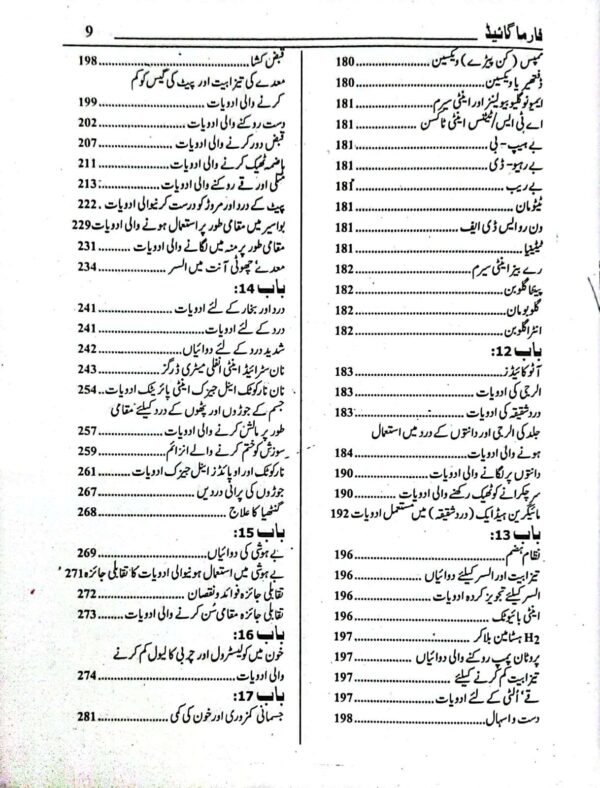 فارما گائیڈ 9
ممپس (کن پیڑے) ویکسین 180
ڈفتھیریا ویکسین 180
ایمیونوگلیوبیولینز اور اینٹی سیرم 181
اے ٹی ایس/ٹیٹنس اینٹی ٹاکسن 181
بے ہیپ - بی 181
بے رہیو - ڈی 181
بے ریب 181
ٹیٹومان 181
ون رو ایس ڈی ایف 181
ٹیٹینیا 181
رے بیز اینٹی سیرم 182
پینٹاگلوبن 182
گلوبومان 182
انٹراگلوبن 182
باب 12:
آٹوکائیڈز 183
الرجی کی ادویات 183
درد شقیقہ کی ادویات 183
جلد کی الرجی اور دانتوں کے درد میں استعمال
ہونے والی ادویات 184
دانتوں پر لگانے والی ادویات 190
سر چکرانے کو ٹھیک رکھنے والی ادویات 190
مائیگرین ہیڈ ایک (درد شقیقہ) میں مستعمل ادویات 192
باب 13:
نظام ہضم 196
تیزابیت اور السر کیلئے دوائیاں 196
السر کیلئے تجویز کردہ ادویات 196
اینٹی بائیوٹک 196
H2 ہسٹامین بلاکر 197
پروٹان پمپ روکنے والی دوائیاں 197
تیزابیت کم کرنے کیلئے 197
قے‘ اُلٹی کے لئے ادویات 197
دست و اسہال 198
قبض کشا 198
معدے کی تیزابیت اور پیٹ کی گیس کو کم
کرنے والی ادویات 199
دست روکنے والی ادویات 202
قبض دور کرنے والی ادویات 207
ہاضمہ ٹھیک کرنے والی ادویات 211
متلی اور قے روکنے والی ادویات 213
پیٹ کے درد اور مروڑ کو درست کرنیوالی ادویات 222
بواسیر میں مقامی طور پر استعمال ہونے والی ادویات 229
مقامی طور پر منہ میں لگانے والی ادویات 231
معدے‘ چھوٹی آنت میں السر 234
باب 14:
درد اور بخار کے لئے ادویات 241
درد کے لئے ادویات 241
شدید درد کے لئے دوائیاں 242
نان سٹرائیڈ اینٹی انفلی میٹری ڈرگز 243
نان نارکوٹک اینل جیزک اینٹی پائریٹک ادویات 254
جسم کے جوڑوں اور پٹھوں کے درد کیلئے مقامی
طور پر مالش کرنے والی ادویات 257
سوزش کو ختم کرنے والے انزائم 259
نارکوٹک اور اوپائڈز اینل جیزک ادویات 261
جوڑوں کی پرانی دردیں 267
گنٹھیا کا علاج 268
باب 15:
بے ہوشی کی دوائیاں 269
بے ہوشی میں استعمال ہونیوالی ادویات کا تقابلی جائزہ 271
تقابلی جائزہ فوائد و نقصان 272
تقابلی جائزہ مقامی سُن کرنے والی ادویات 273
باب 16:
خون میں کولیسٹرول اور چربی کا لیول کم کرنے
والی ادویات 274
باب 17:
جسمانی کمزوری اور خون کی کمی 281